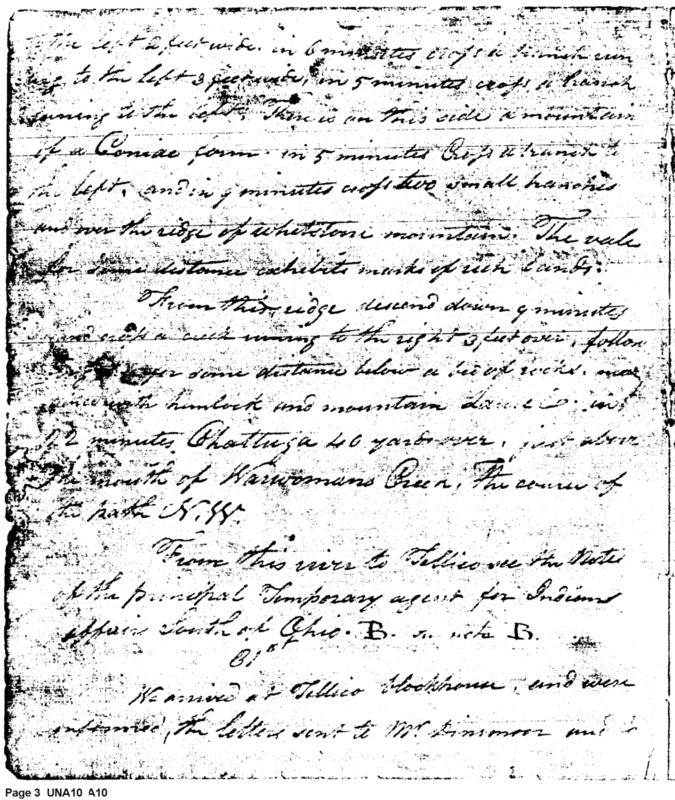 the left 2 feet wide. in 6 minutes cross a branch run
ing to the left 3 feet wide, in 5 minutes cross a branch
runing to the left. There is on this side a mountain
of a Coniac form. in 5 minutes Cross a branch to
the left, and in 9 minutes cross two small branches
and over the ridge of whetstone mountain. The vale
for some distance exhibits marks of rich lands.
From this ridge descend down 9 minutes
and cross a creek runing to the right 3 feet over, follow
for some distance below a bed of rocks,
with hemlock and mountain Laurel. in
22 minutes Chattuga 40 yards over, just above
the mouth of Warwomans Creek, the course of
the path N.W.
From this river to Tellico see the Notes
of the principal Temporary agent for Indians
affairs South of Ohio. B. note B.
We arrived at Tellico blockhouse, and were
informed, the letters sent to Mr. Dinsmoor and
Page 3 UNA10 A10